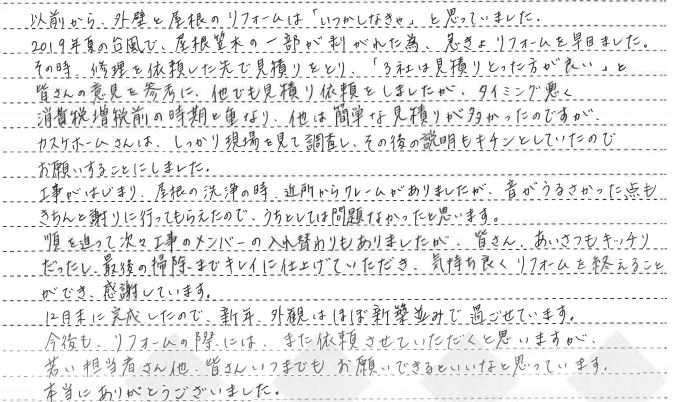 以前から、外壁と屋根のリフォームは「いつかしなきゃ」と思っていました。
2019年夏の台風で、屋根笠木の一部が剥がれた為、急きょリフォームを早目ました。
その時、修理を依頼した先で見積りをとり、「3社は見積りとった方が良い」と
皆さんの意見を参考に、他でも見積り依頼をしましたが、タイミング悪く
消費税増税前の時期と重なり、他は簡単な見積りが多かったのですが、
カスケホームさんは、しっかり現場を見て調査し、その後の説明もキチンとしていたので
お願いすることにしました。
工事がはじまり、屋根の洗浄の時、近所からクレームがありましたが、音がうるさかった点も
きちんと謝りに行ってもらえたので、うちとしては問題なかったと思います。
順を追って次々工事のメンバーの入れ替わりもありましたが、皆さん、あいさつもキッチリ
だったし、最後の掃除までキレイに仕上げていただき、気持ち良くリフォームを終えること
ができ、感謝しています。
12月末に完成したので、新年、外観はほぼ新築並みで過ごせています。
今後も、リフォームの際には、また依頼させていただくと思いますが、
若い担当者さん他、皆さんいつまでもお願いできるといいなと思っています。
本当にありがとうございました。